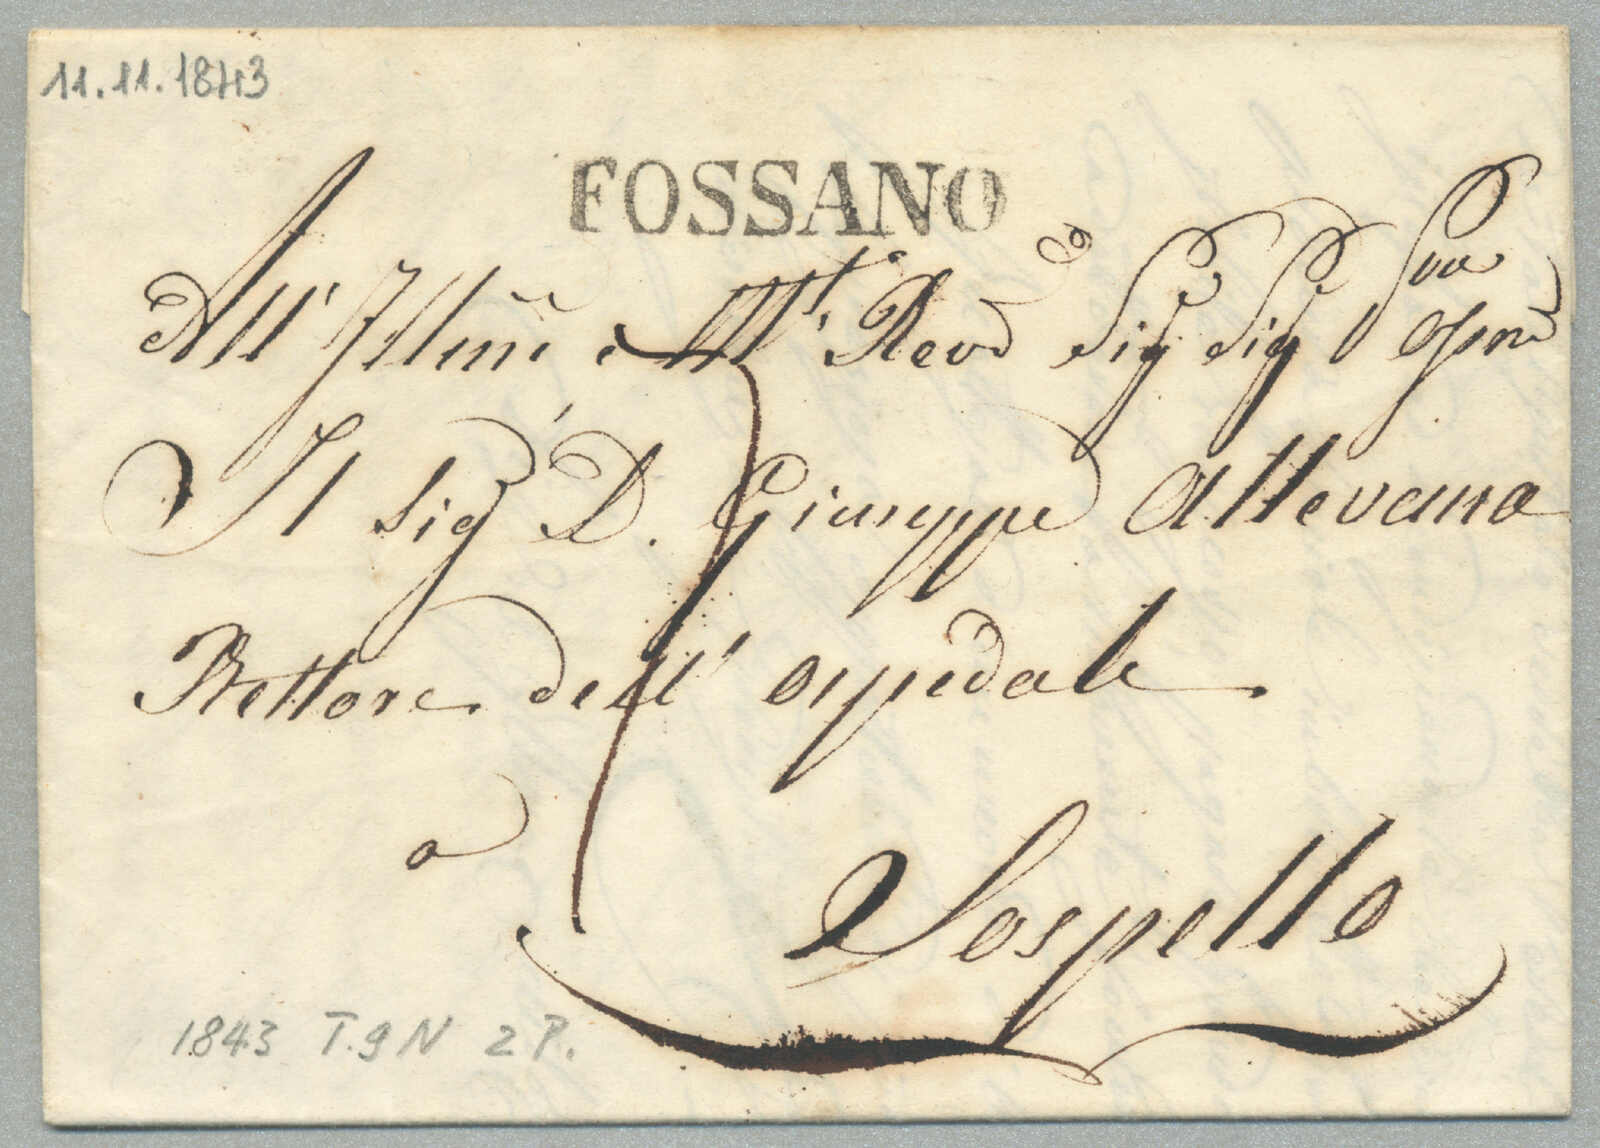 11.11.1843
FOSSANO
All' Illm̃o e M.to Rev.d Sig Sig Pron
Il Sig' D. Giuseppe Allevena
Rettore dell' ospedale.
a
Sospello
1843 T.9N 2P.